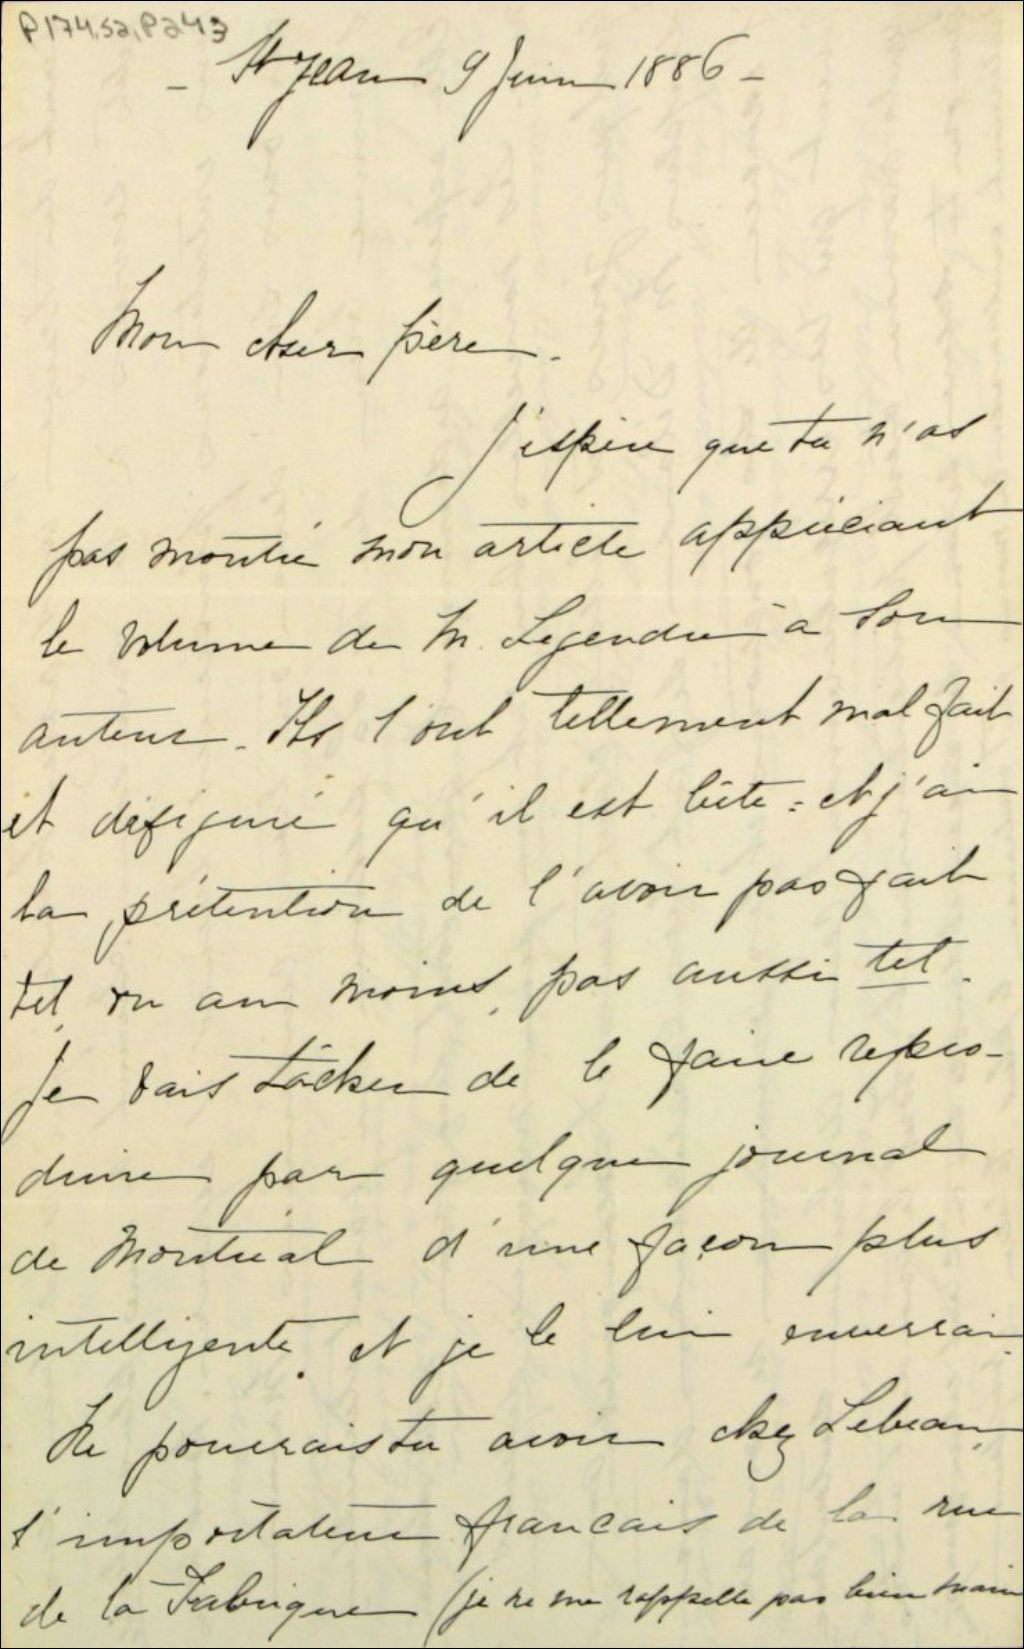 P174,S2,P243
- St Jean 9 Juin 1886 -
Mon cher père.
J'espère que tu n'as
pas montré mon article appréciant
le volume de M. Legendre à son
auteur. Ils l'ont tellement mal fait
et défiguré qu'il est bête : et j'ai
la prétention de l'avoir pas fait
tel, ou au moins, pas aussi tel.
Je vais tâcher de le faire repro-
duire par quelque journal
de Montréal d'une façon plus
intelligente, et je le lui enverrai.
Ne pourrais tu avoir chez Lebeau,
l'importateur francais de la rue
de la Fabrique (je ne me rappelle pas bien